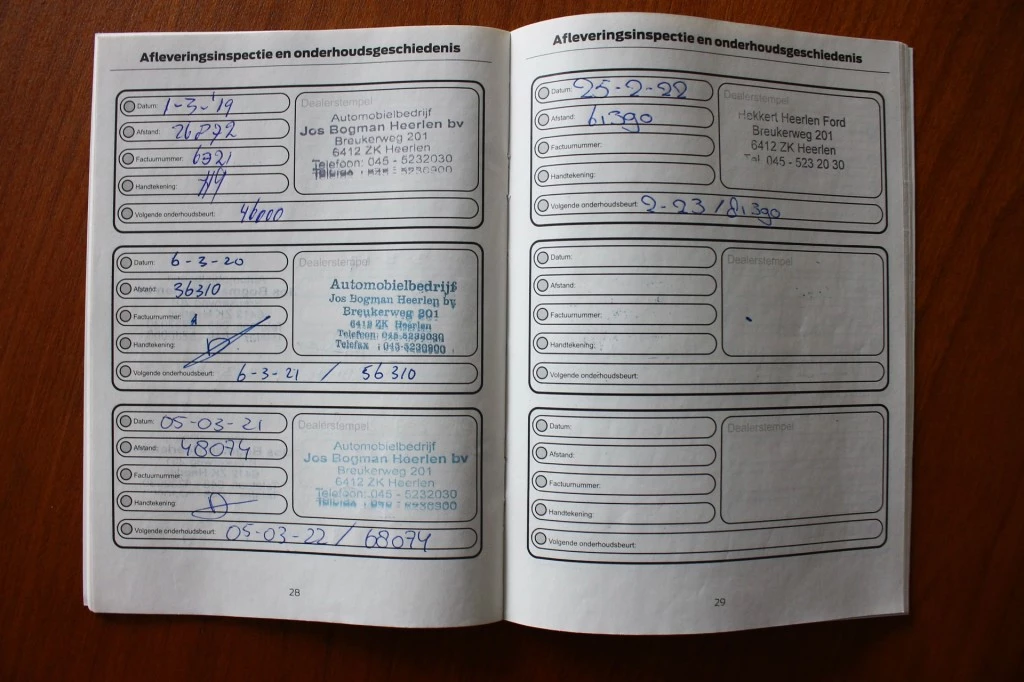 Afleveringsinspectie en onderhoudsgeschiedenis
Datum: 1-3-'19
Afstand: 26872
Factuurnummer: 6721
Handtekening:
Volgende onderhoudsbeurt: 46000
Dealerstempel
Automobielbedrijf
Jos Bogman Heerlen bv
Breukerweg 201
6412 ZK Heerlen
Telefoon: 045 - 5232030
Datum: 6-3-20
Afstand: 36310
Factuurnummer:
Handtekening:
Volgende onderhoudsbeurt: 6-3-21 / 56310
Dealerstempel
Automobielbedrijf
Jos Bogman Heerlen bv
Breukerweg 201
6412 ZK Heerlen
Telefoon : 045-5232030
Telefax : 045-5230900
Datum: 05-03-21
Afstand: 48074
Factuurnummer:
Handtekening:
Volgende onderhoudsbeurt: 05-03-22 / 68074
Dealerstempel
Automobielbedrijf
Jos Bogman Heerlen bv
Breukerweg 201
6412 ZK Heerlen
Telefoon: 045 - 5232030
28
Afleveringsinspectie en onderhoudsgeschiedenis
Datum: 25-2-22
Afstand: 61390
Factuurnummer:
Handtekening:
Volgende onderhoudsbeurt: 2-23 / 81390
Dealerstempel
Hekkert Heerlen Ford
Breukerweg 201
6412 ZK Heerlen
Tel. 045 - 523 20 30
Datum:
Afstand:
Factuurnummer:
Handtekening:
Volgende onderhoudsbeurt:
Dealerstempel
Datum:
Afstand:
Factuurnummer:
Handtekening:
Volgende onderhoudsbeurt:
Dealerstempel
29